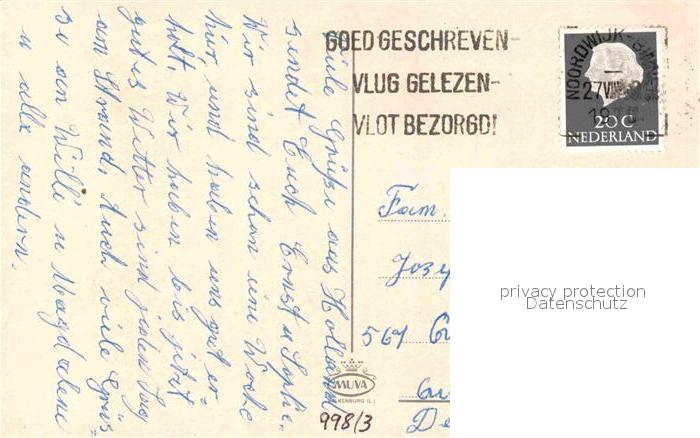 GOED GESCHREVEN-
VLUG GELEZEN-
VLOT BEZORGD!
NOORDWIJK-BINNEN
27 VIII
20 C
NEDERLAND
Viele Grüße aus Holland
sendet Euch Ernst u Sofie.
Wir sind schon eine Woche
hier und haben uns gut er-
holt. Wir haben bis jetzt
gutes Wetter sind jeden Tag
am Strand. Auch viele Grüs-
se an Willi u Magdalene
u alle andern.
Fam.
Josef
567
De
MUVA
VALKENBURG (L.)
998/3
privacy protection
Datenschutz